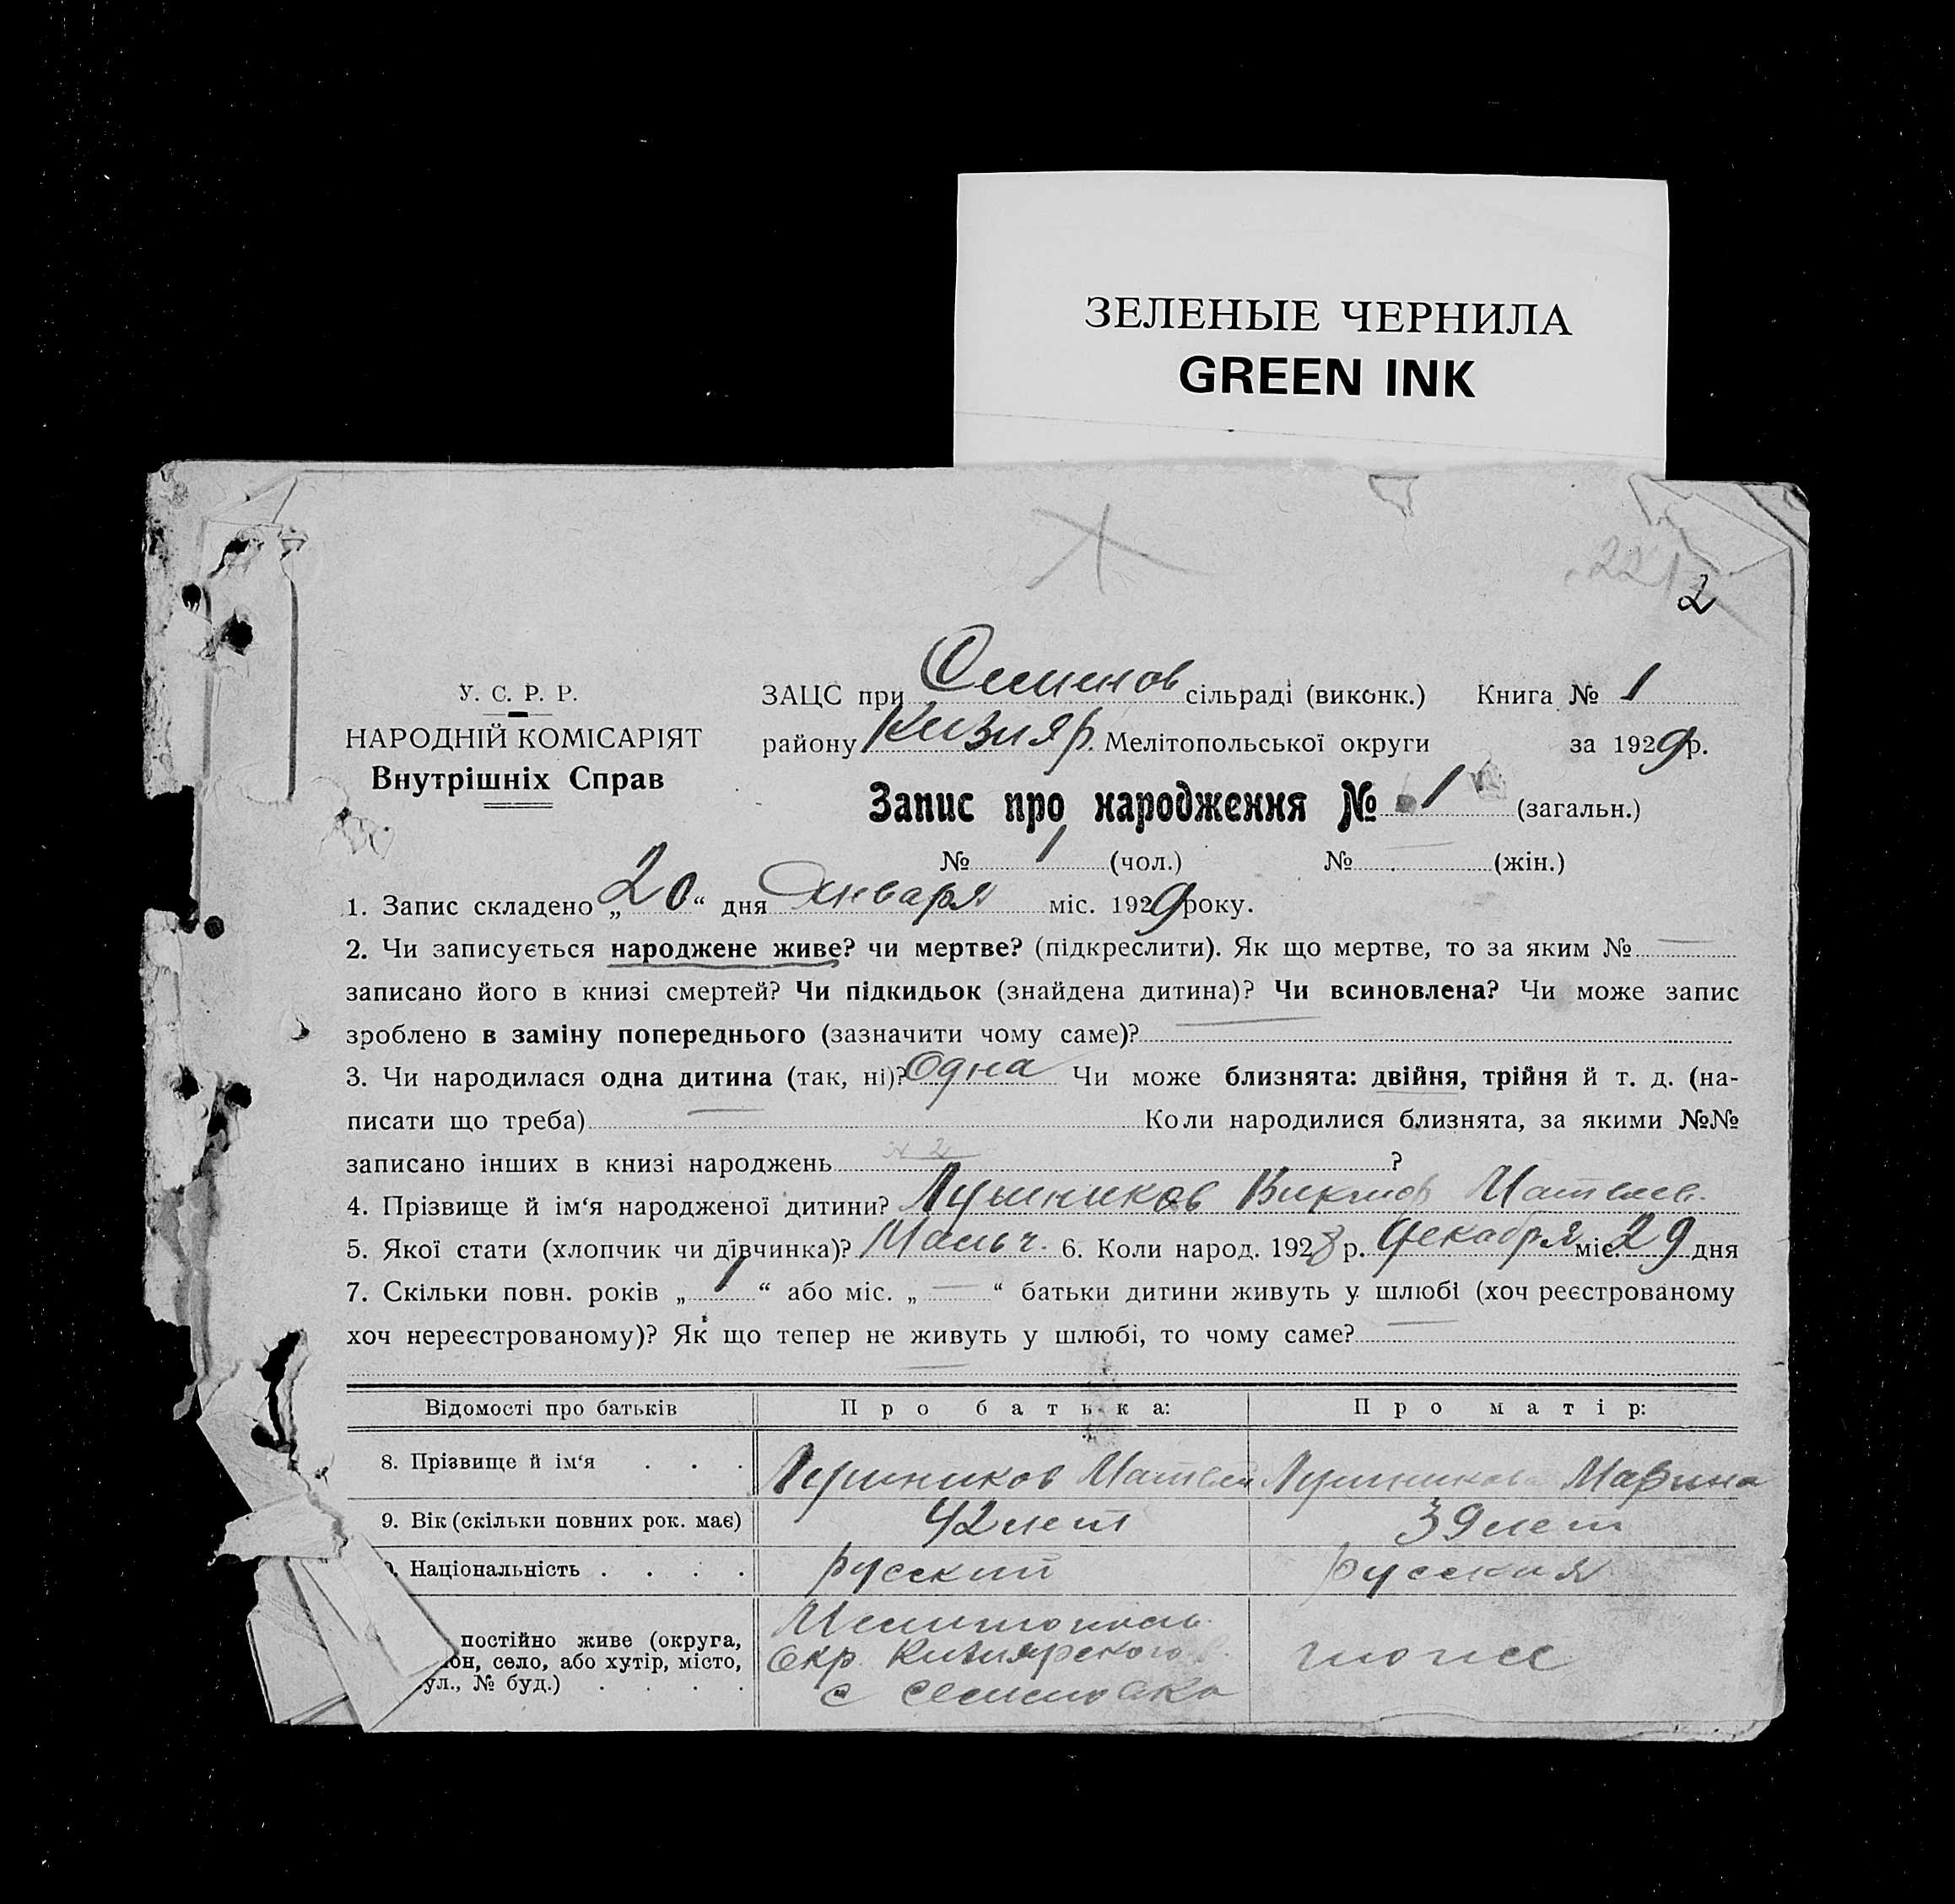 ЗЕЛЕНЫЕ ЧЕРНИЛА
GREEN INK
2
У. С. Р. Р.
НАРОДНІЙ КОМІСАРІЯТ
Внутрішніх Справ
ЗАЦС при Семенов сільраді (виконк.) Книга № 1
району Кизияр. Мелітопольської округи за 1929 р.
Запис про народження № 1 (загальн.)
№ 1 (чол.) № — (жін.)
1. Запис складено „20“ дня Января міс. 1929 року.
2. Чи записується народжене живе? чи мертве? (підкреслити). Як що мертве, то за яким № —
записано його в книзі смертей? Чи підкидьок (знайдена дитина)? Чи всиновлена? Чи може запис
зроблено в заміну попереднього (зазначити чому саме)? —
3. Чи народилася одна дитина (так, ні)? Одна Чи може близнята: двійня, трійня й т. д. (на-
писати що треба) — Коли народилися близнята, за якими №№
записано інших в книзі народжень ?
4. Прізвище й ім‘я народженої дитини? Лушников Виктор Матвеев.
5. Якої стати (хлопчик чи дівчинка)? Мальч. 6. Коли народ. 1928 р. Декабря міс. 29 дня
7. Скільки повн. років „1“ або міс. „—“ батьки дитини живуть у шлюбі (хоч реєстрованому
хоч нереєстрованому)? Як що тепер не живуть у шлюбі, то чому саме? —
Відомості про батьків Про батька: Про матір:
8. Прізвище й ім‘я . . . Лушников Матвей Лушникова Марина
9. Вік (скільки повних рок. має) 42 лет 39 лет
Національність . . . . русский русская
постійно живе (округа, Мелитополь.
село, або хутір, місто, Окр. Кизиярского
№ буд.) . . . . с Семеновка тоже